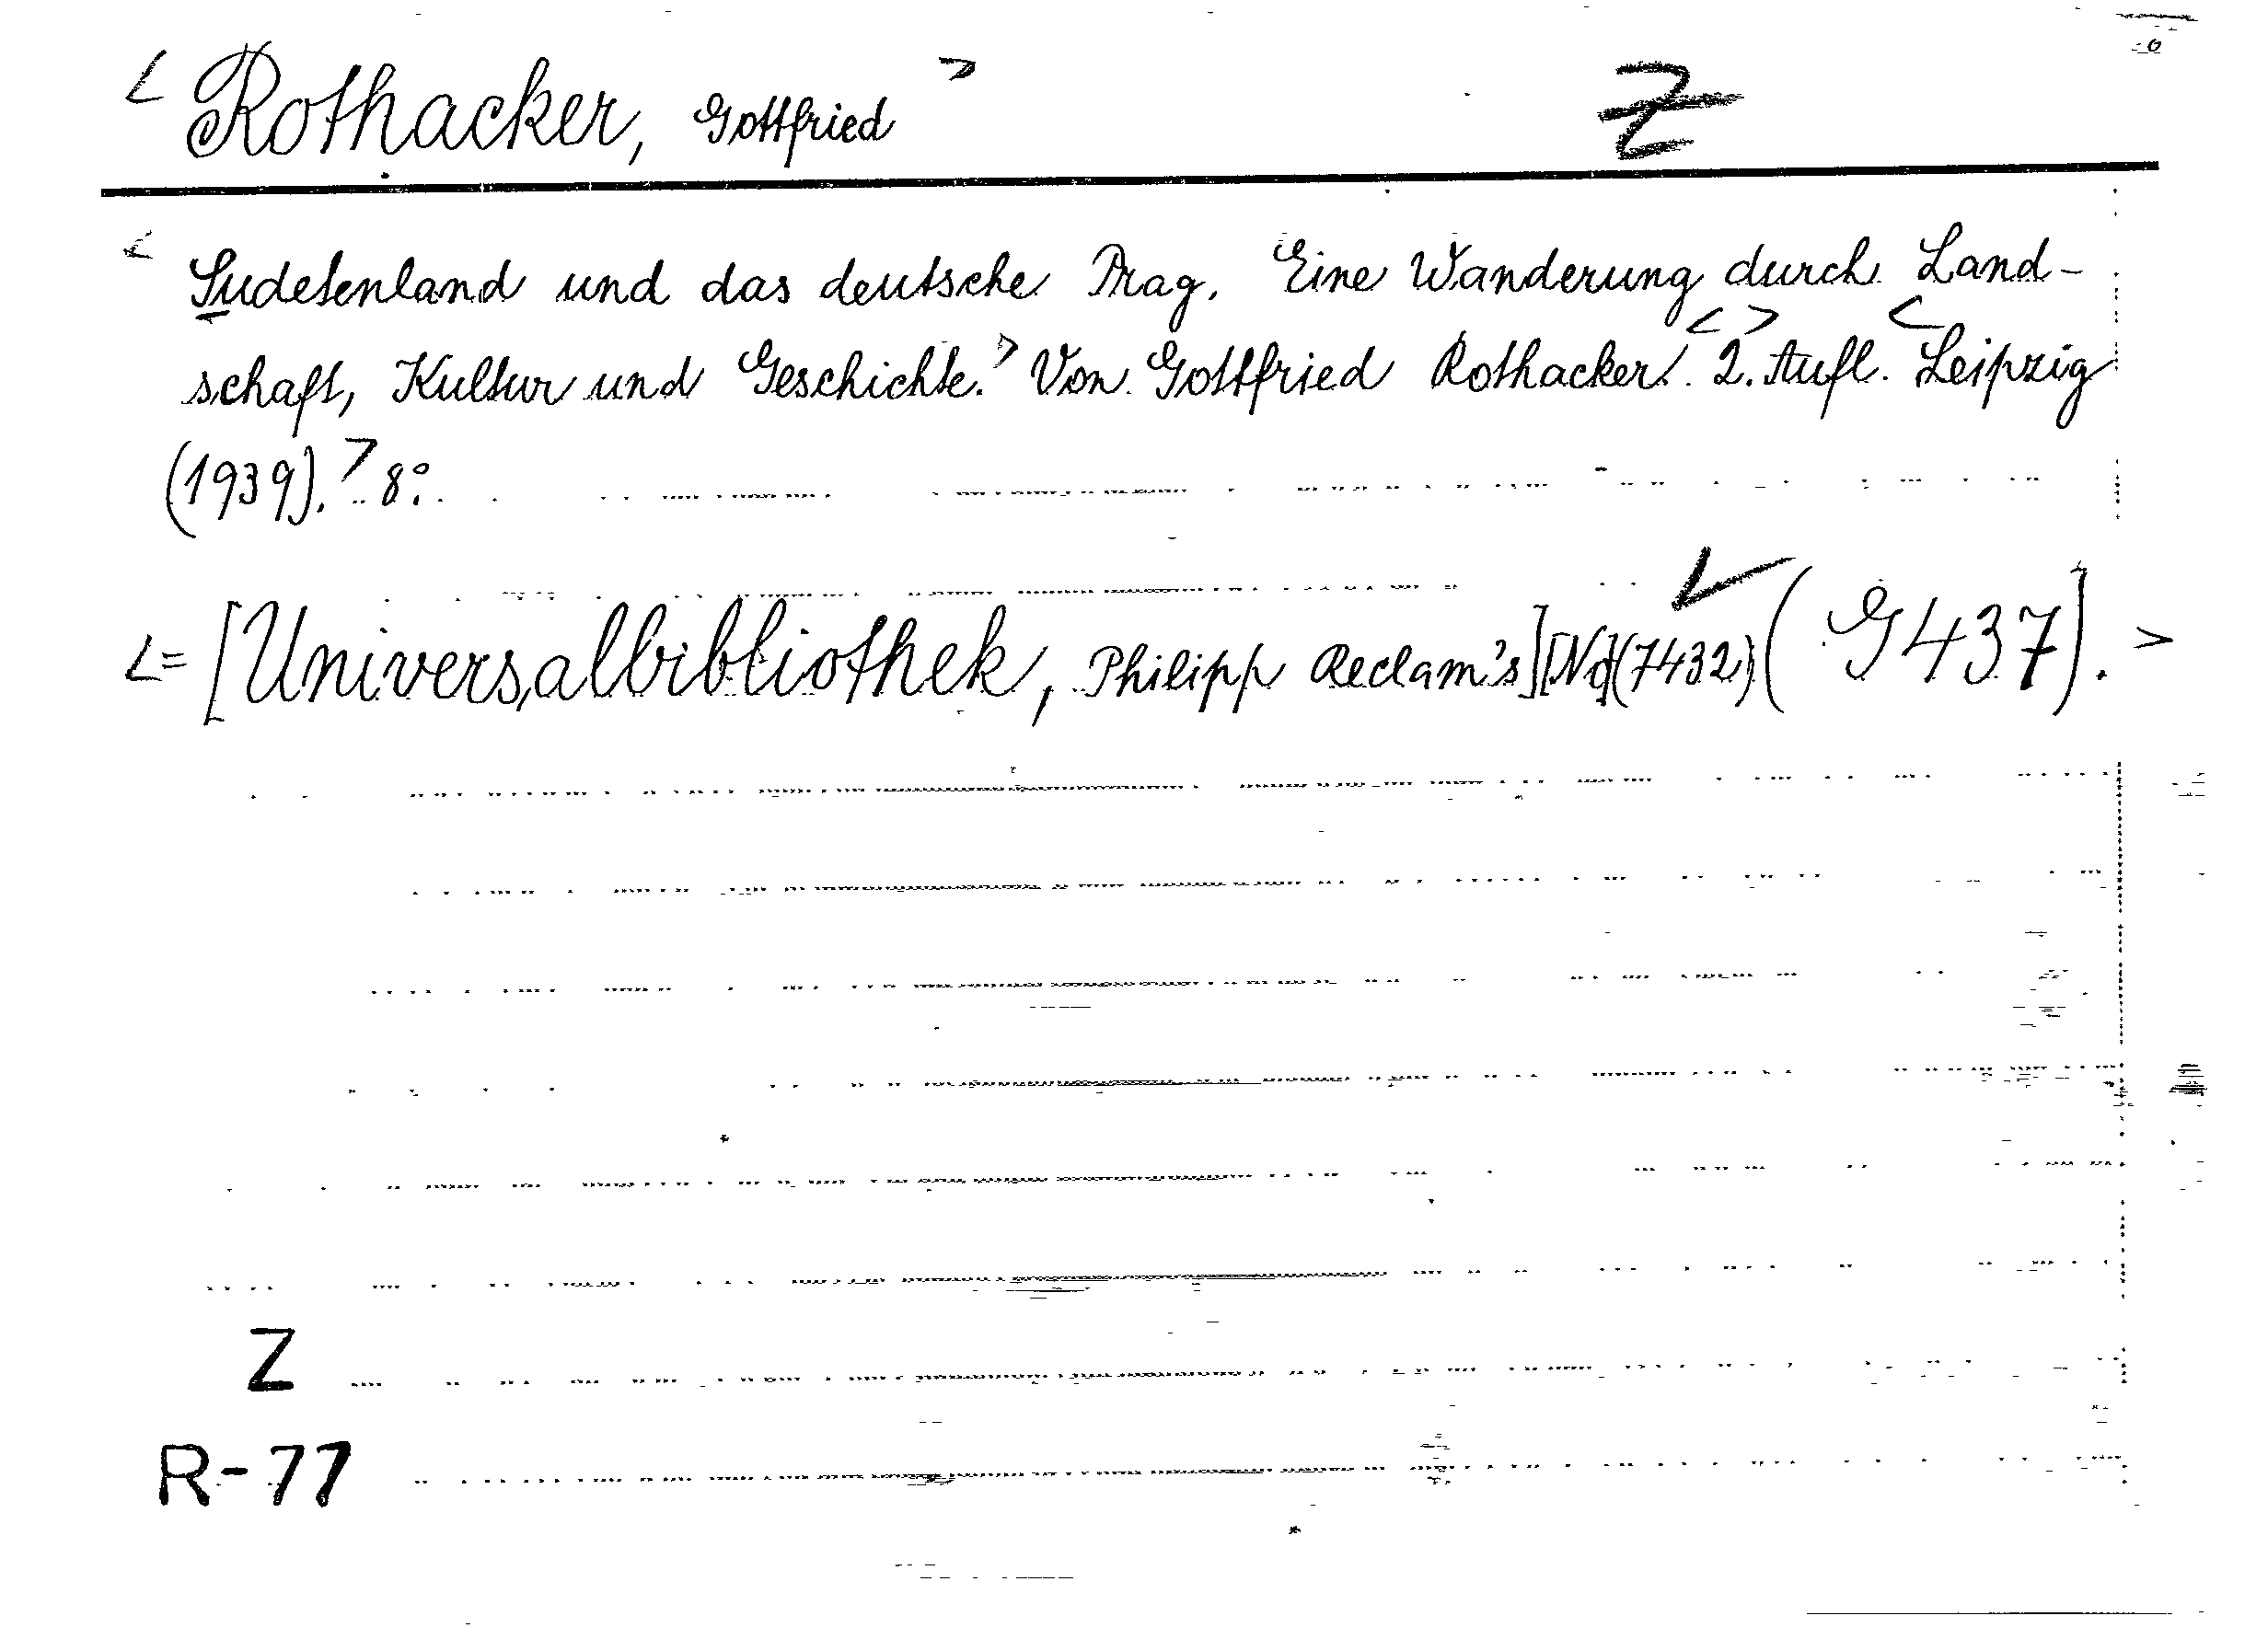 < Rothacker, Gottfried > Z
< Sudetenland und das deutsche Prag. Eine Wanderung durch Land-
schaft, Kultur und Geschichte.> Von Gottfried Rothacker. <2.> Aufl. <Leipzig
(1939).> 8°.
<= [Universalbibliothek, Philipp Reclam's] [No] (7432) (G437). >
Z
R-77